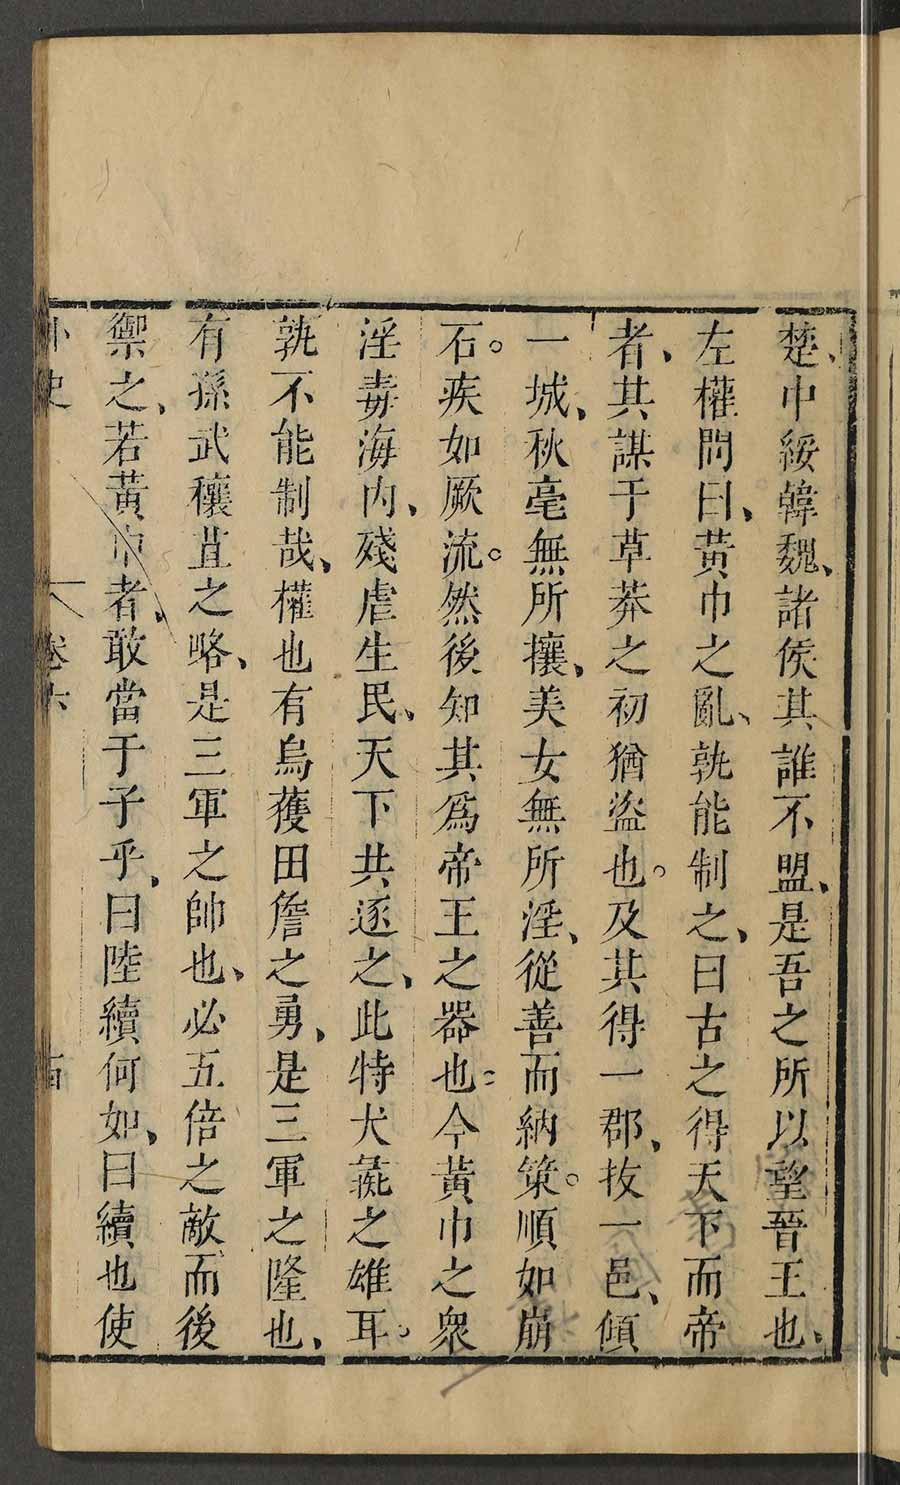 楚、中綏韓魏、諸侯其誰不盟、是吾之所以望晉王也、
左權問曰、黃巾之亂、孰能制之、曰古之得天下而帝
者、其謀于草莽之初猶盜也。及其得一郡、拔一邑、傾
一城、秋毫無所攘、美女無所淫、從善而納策。順如崩
石。疾如厥流。然後知其爲帝王之器也。今黃巾之衆
淫毒海內、殘虐生民、天下共逐之、此特犬彘之雄耳。
孰不能制哉、權也有烏獲田詹之勇、是三軍之隆也、
有孫武穰苴之略、是三軍之帥也、必五倍之敵而後
禦之、若黃巾者、敢當于子乎、曰陸續何如、曰續也使
外史 卷六